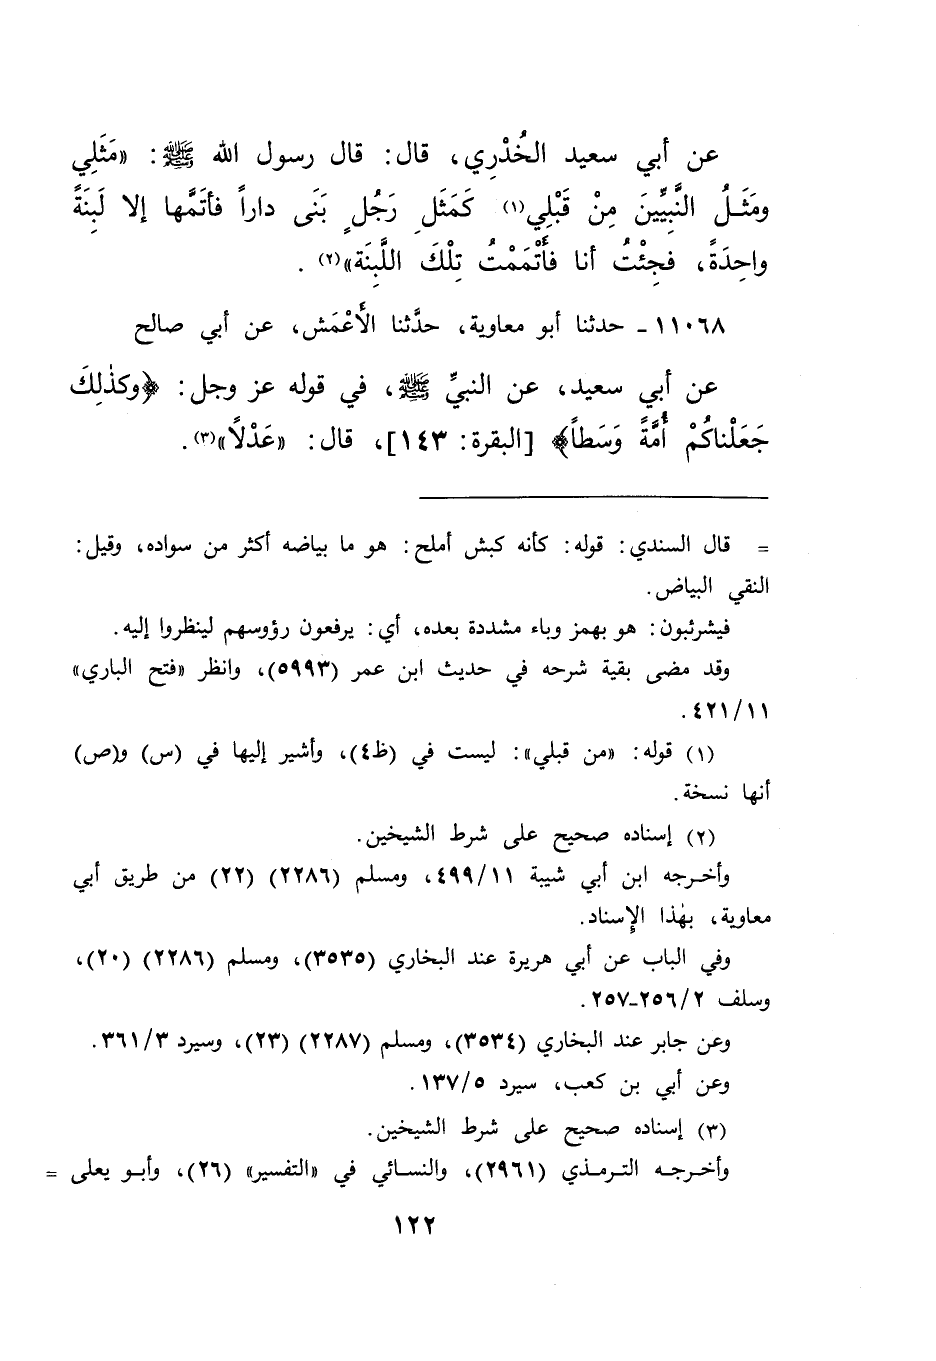 عن أبي سعيد الخُدْرِي، قال: قال رسول الله ﷺ: «مَثَلِي
ومَثَلُ النَّبِيِّينَ مِنْ قَبْلِي(١) كَمَثَلِ رَجُلٍ بَنَى داراً فأتَمَّها إلا لَبِنَةً
واحِدَةً، فَجِئْتُ أنا فأَتْمَمْتُ تِلْكَ اللَّبِنَة»(٢).
١١٠٦٨ - حدثنا أبو معاوية، حدَّثنا الأَعْمَش، عن أبي صالح
عن أبي سعيد، عن النبيِّ ﷺ، في قوله عز وجل: ﴿وكذٰلِكَ
جَعَلْناكُمْ أُمَّةً وَسَطاً﴾ [البقرة: ١٤٣]، قال: «عَدْلًا»(٣).
= قال السندي: قوله: كأنه كبش أملح: هو ما بياضه أكثر من سواده، وقيل:
النقي البياض.
فيشرئبون: هو بهمز وباء مشددة بعده، أي: يرفعون رؤوسهم لينظروا إليه.
وقد مضى بقية شرحه في حديث ابن عمر (٥٩٩٣)، وانظر «فتح الباري»
٤٢١/١١.
(١) قوله: «من قبلي»: ليست في (ظ٤)، وأشير إليها في (س) و(ص)
أنها نسخة.
(٢) إسناده صحيح على شرط الشيخين.
وأخرجه ابن أبي شيبة ٤٩٩/١١، ومسلم (٢٢٨٦) (٢٢) من طريق أبي
معاوية، بهٰذا الإسناد.
وفي الباب عن أبي هريرة عند البخاري (٣٥٣٥)، ومسلم (٢٢٨٦) (٢٠)،
وسلف ٢٥٦/٢-٢٥٧.
وعن جابر عند البخاري (٣٥٣٤)، ومسلم (٢٢٨٧) (٢٣)، وسيرد ٣٦١/٣.
وعن أبي بن كعب، سيرد ١٣٧/٥.
(٣) إسناده صحيح على شرط الشيخين.
وأخرجه الترمذي (٢٩٦١)، والنسائي في «التفسير» (٢٦)، وأبو يعلى =
١٢٢